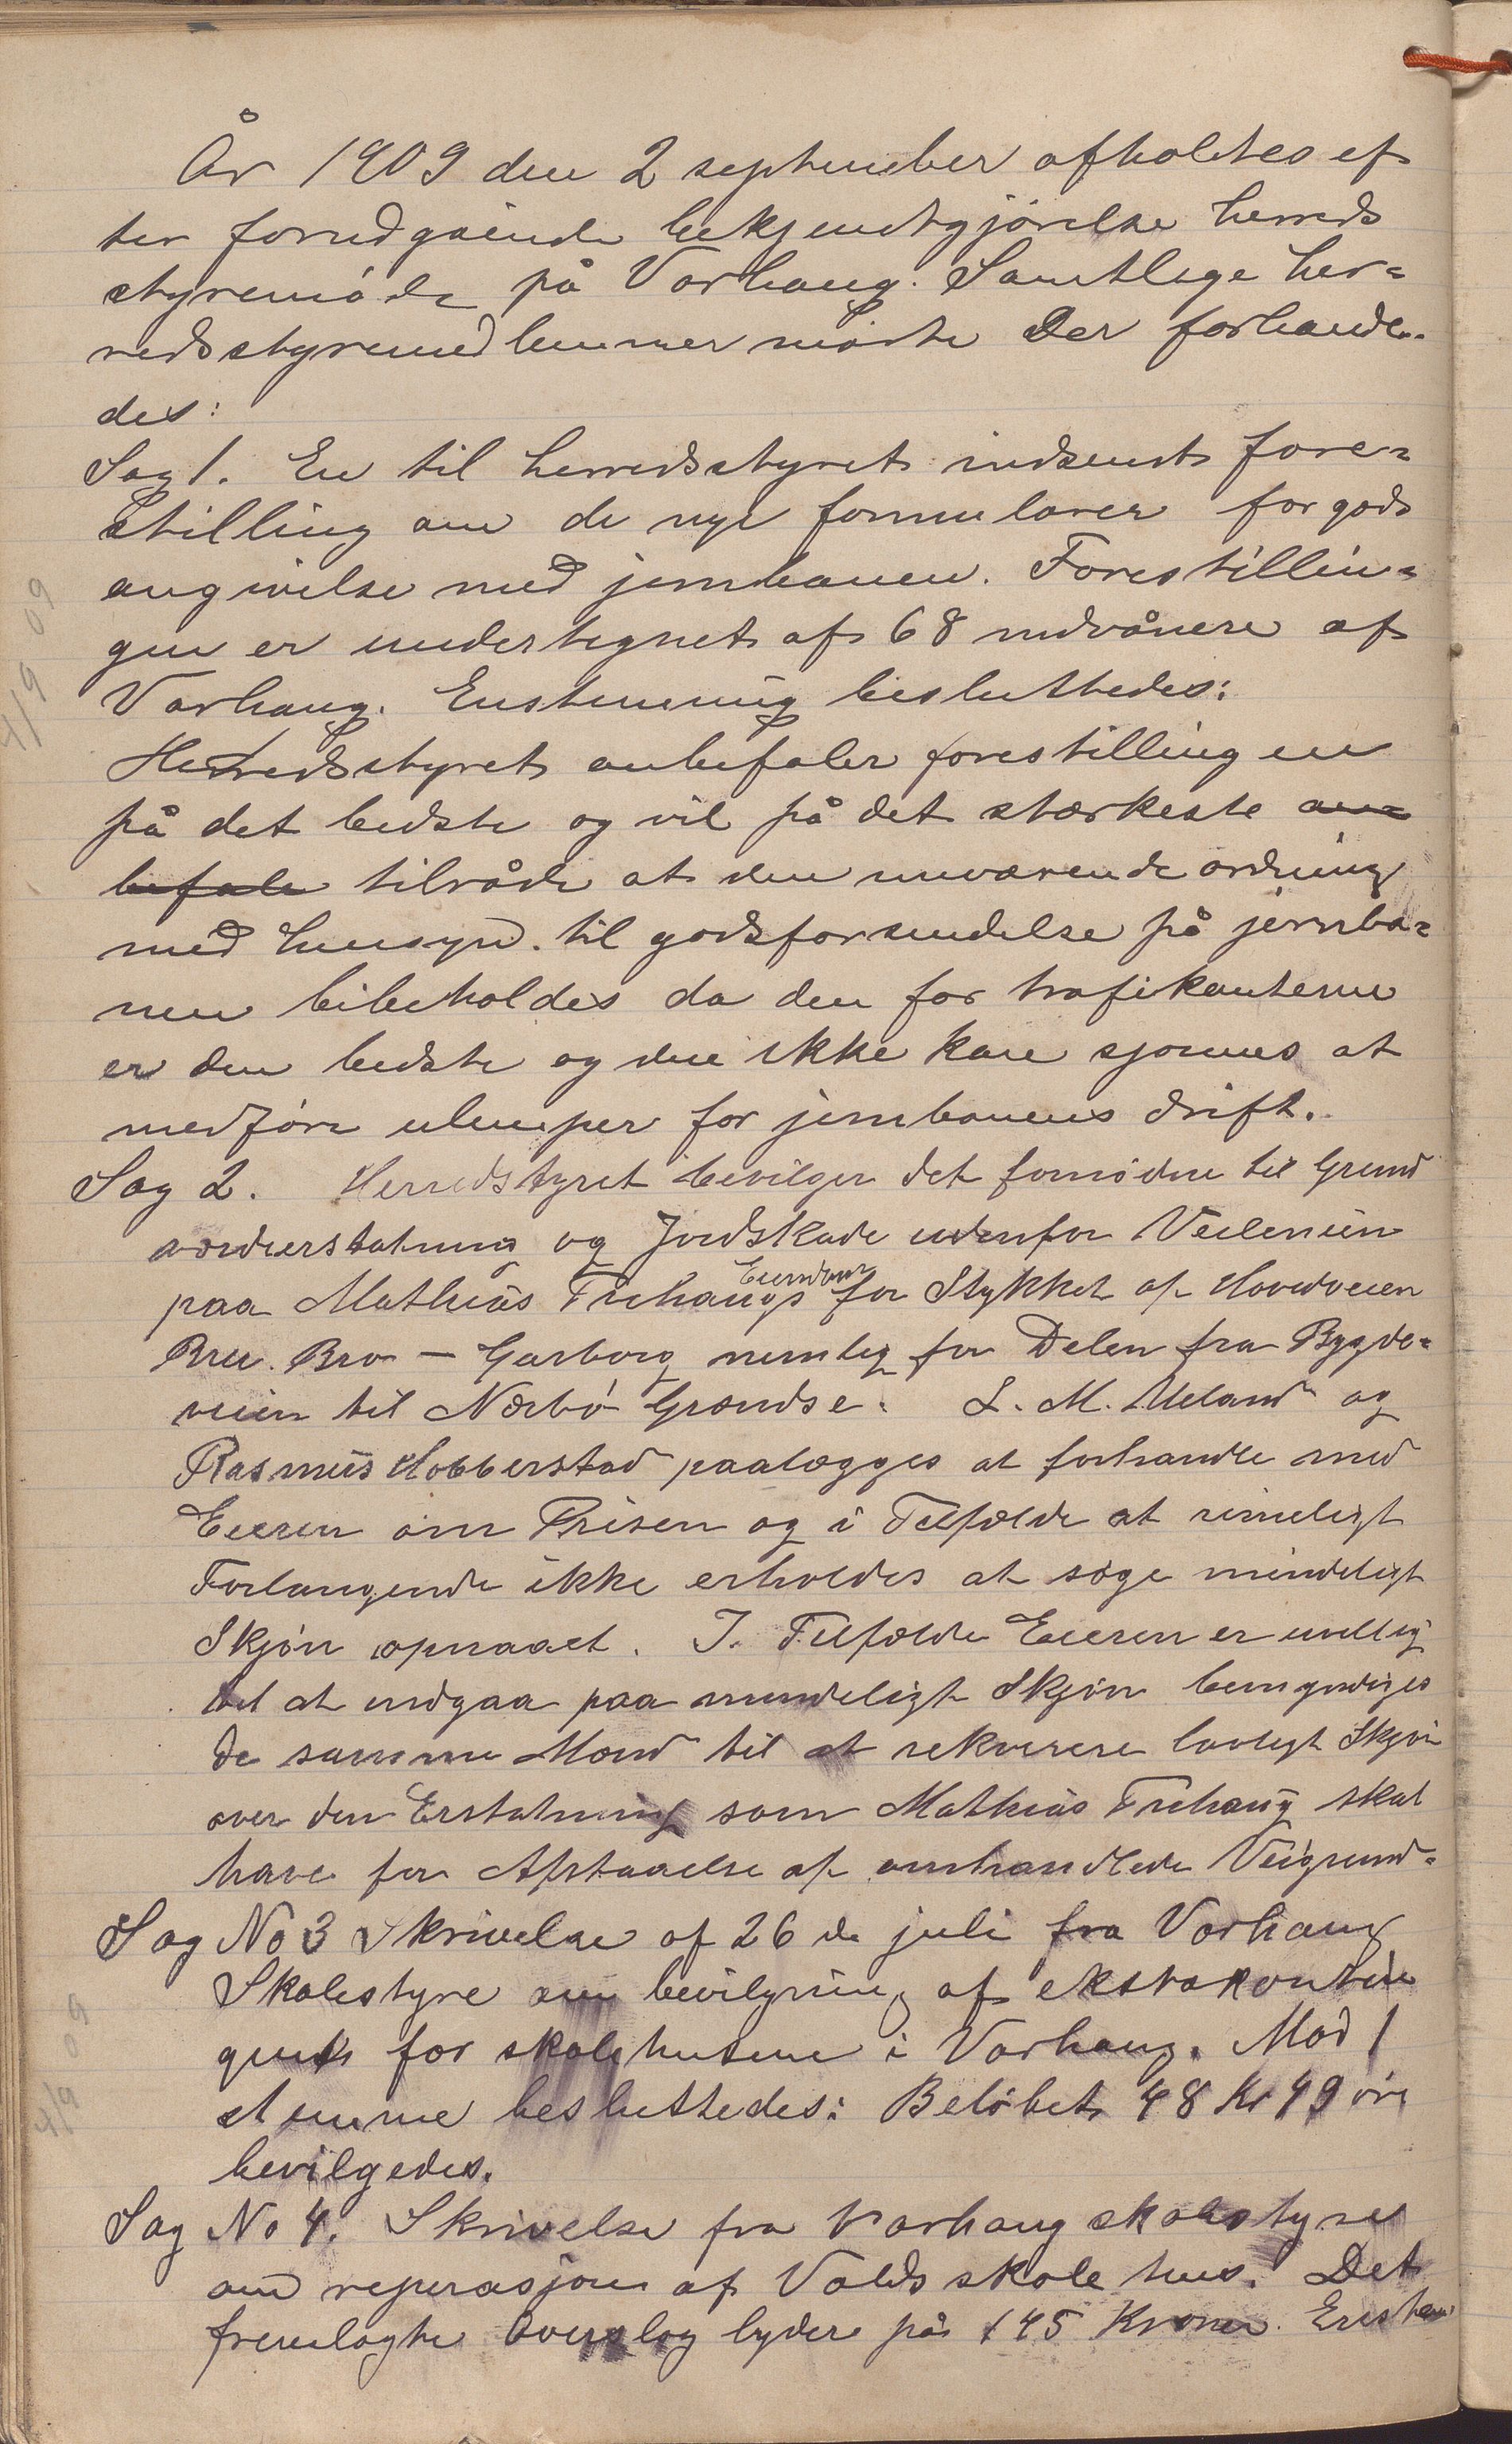 År 1909 den 2 september afholdtes ef
ter forudgående bekjendtgjörelse herreds
styremöde på Varhaug. Samtlige her=
redsstyremedlemmer mödte Der forhandle-
des:
Sag 1. En til herredsstyret indsendt fore=
stilling om de nye formularer for gods
angivelse med jernbanen. Forestillin=
gen er undertegnet af 68 indvånere af
Varhaug. Enstemmig besluttedes:
Herredsstyret anbefaler forestillingen
på det bedste og vil på det stærkeste an=
befale tilråde at den nuværende ordning
med hensyn til godsforsendelse på jernba=
nen bibeholdes da den for trafikanterne
er den bedste og den ikke kan sjönnes at
medföre ulemper for jernbanens drift.
Sag 2. Herredstyret bevilger det fornödne til Grund
avorderstatning og Jordskade udenfor Veilenien
Eiendom
paa Mathias Trehaugs for Stykket af Hovedveien
Bru. Bro - Garborg nemlig for Delen fra Bygde=
veien til Nærbö Grændse. L. M. Ueland og
Rasmus Hobberstad paalægges at forhandle med
Eieren om Prisen og i Tilfælde at rimeligt
Forlangende ikke erholdes at söge mindeligt
Skjön opnaaet. I. Tilfælde Eieren er uvillig
til at indgaa paa mindeligt Skjön bemyndiges
de samme Mænd til at rekverere lovligt Skjön
over den Erstatning som Mathias Trehaug skal
have for Afstaaelse af omhandlede Veigrund.
Sag No 3 Skrivelse af 26 de juli fra Varhaug
Skolestyre om bevilgning af ekstrakontin
gent for skolehusene i Varhaug. Mod 1
stemme besluttedes: Belöbet 48 Kr 49 öre
bevilgedes.
Sag No 4. Skrivelse fra Varhaug skolestyre
om reperasjon af Valds skolehus. Det
fremlagte Overslag lyder på 145 Kroner. Enstem
4/9 09
4/9 09